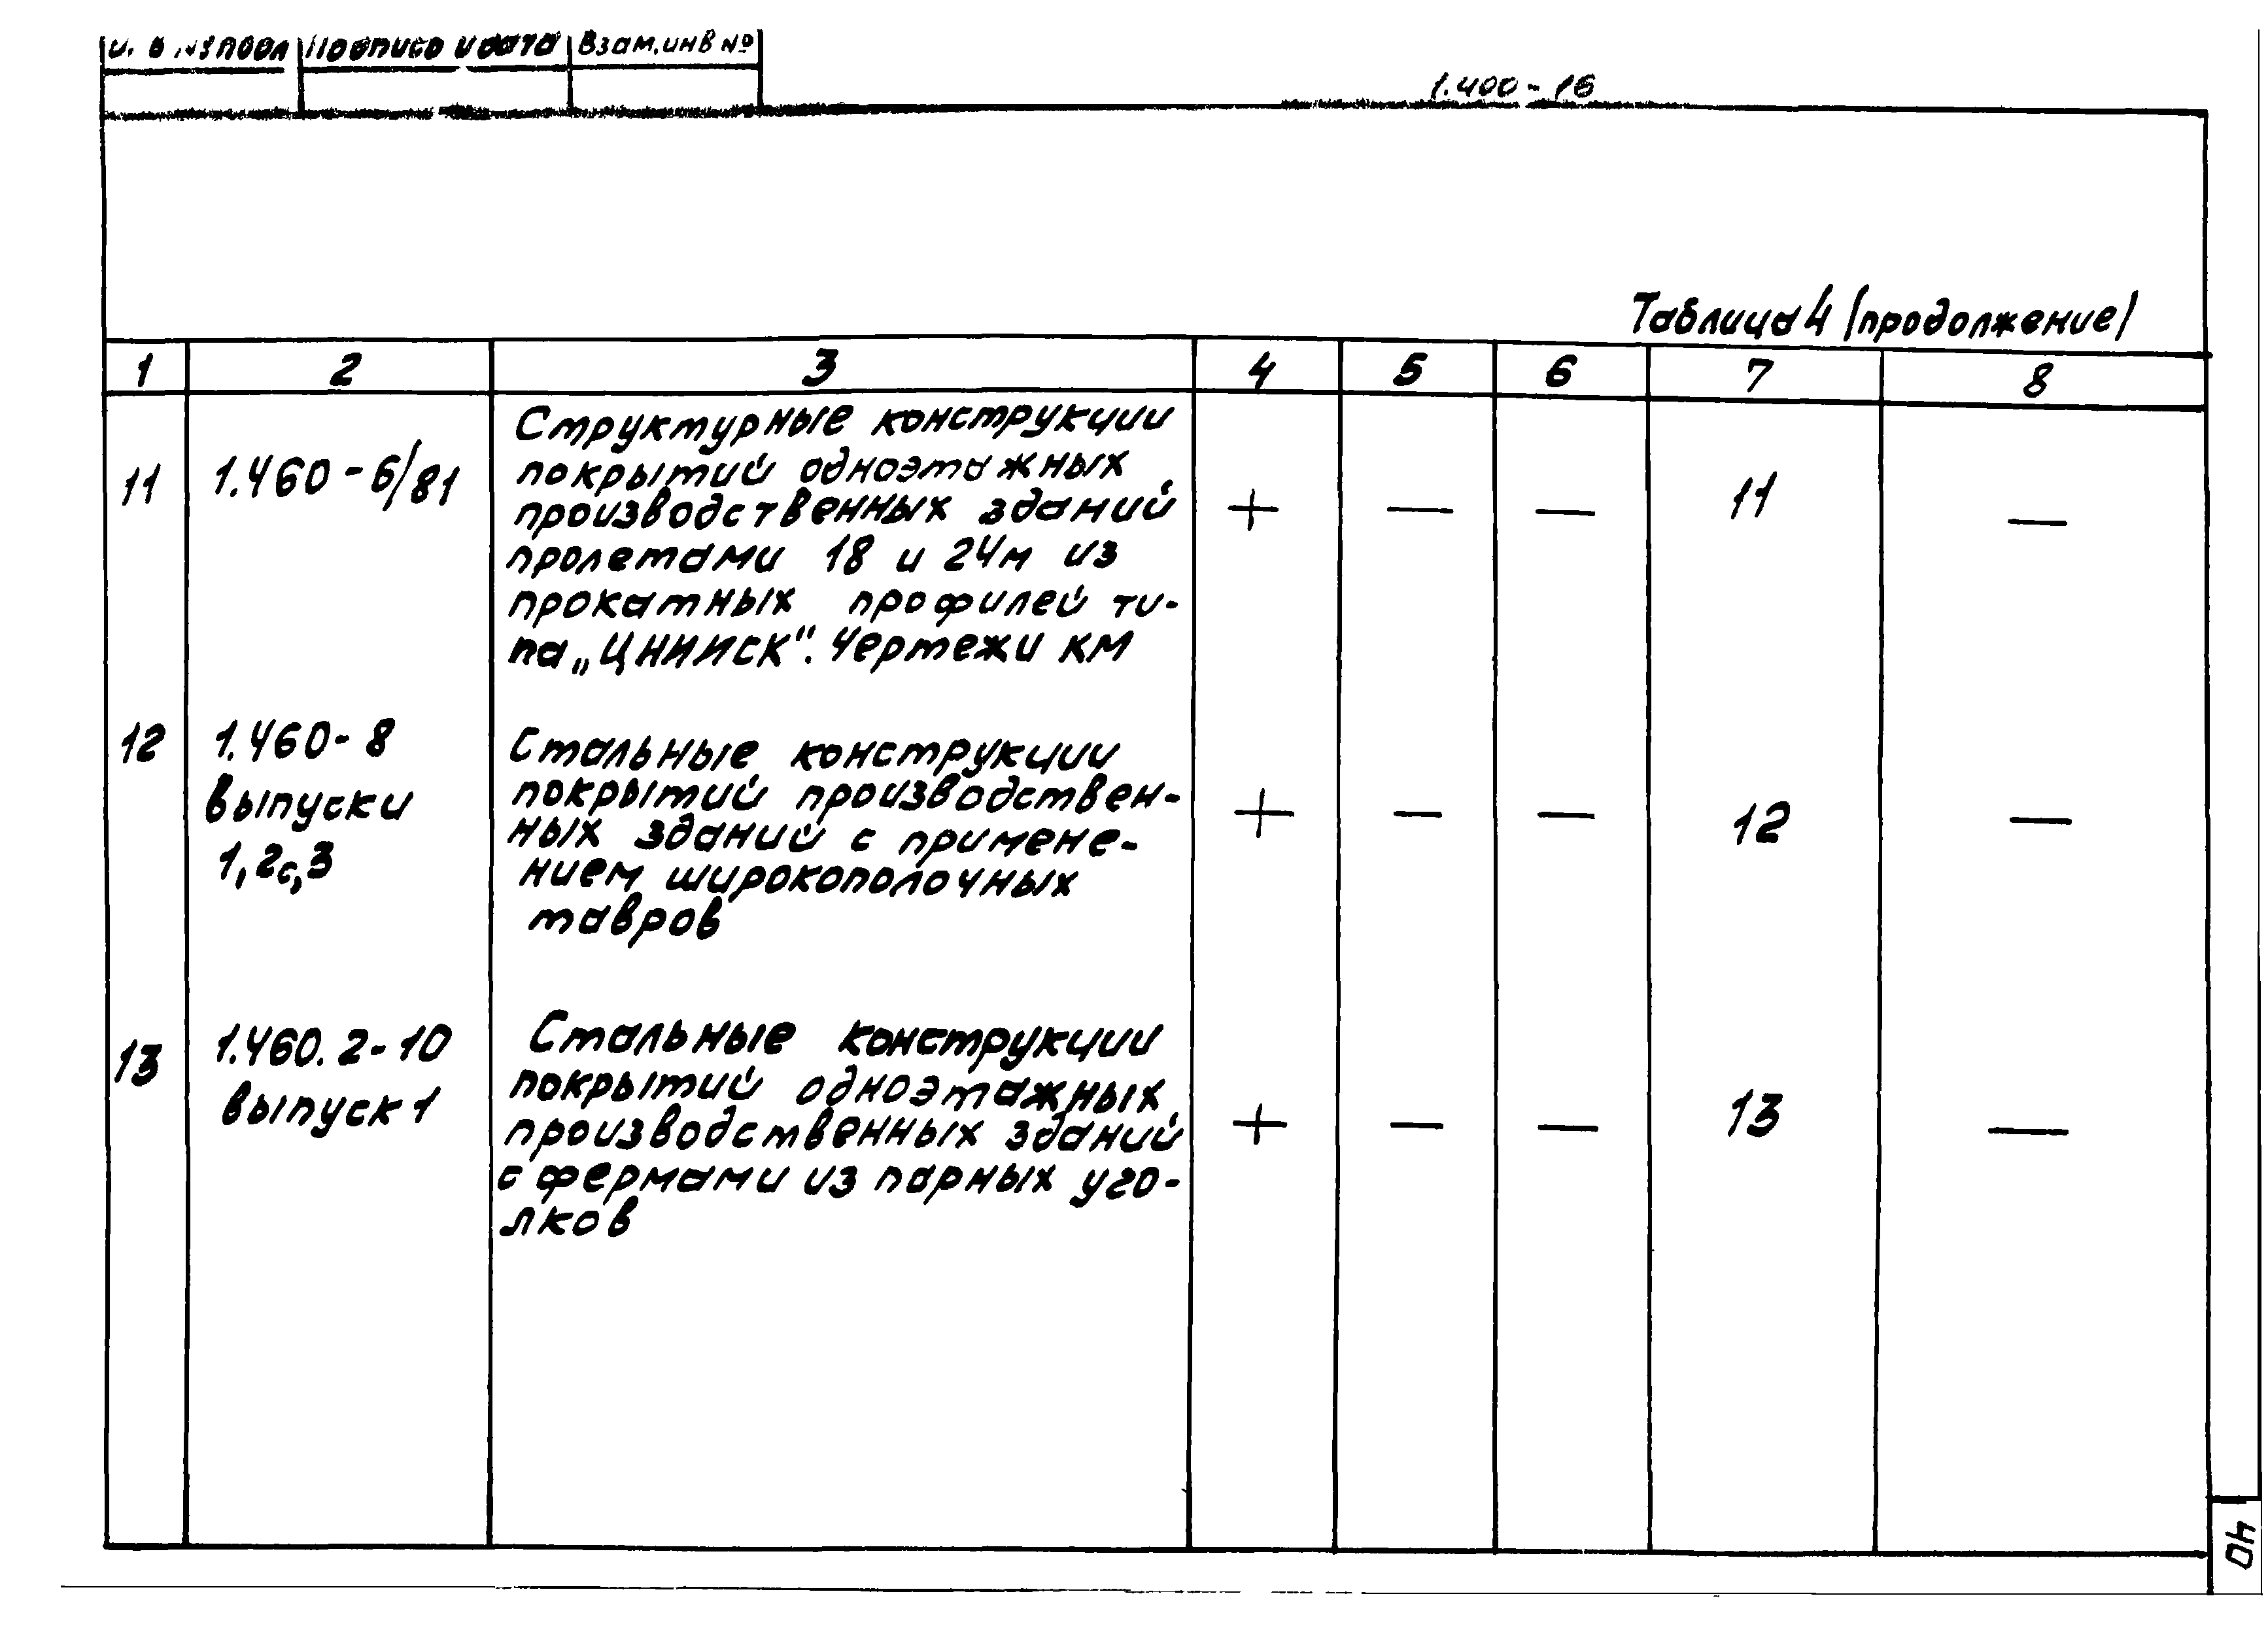 Подпись и дата Взам.инв №
1.400-16
Таблица 4 /продолжение/
1 2 3 4 5 6 7 8
Структурные конструкции
покрытий одноэтажных
11 1.460-6/81 производственных зданий + — — 11 —
пролетами 18 и 24м из
прокатных профилей ти-
па „ЦНИИСК". Чертежи КМ
12 1.460-8 Стальные конструкции
выпуски покрытий производствен- + — — 12 —
1,2с,3 ных зданий с примене-
нием широкополочных
тавров
13 1.460.2-10 Стальные конструкции
выпуск 1 покрытий одноэтажных
производственных зданий + — — 13 —
с фермами из парных уго-
лков
40